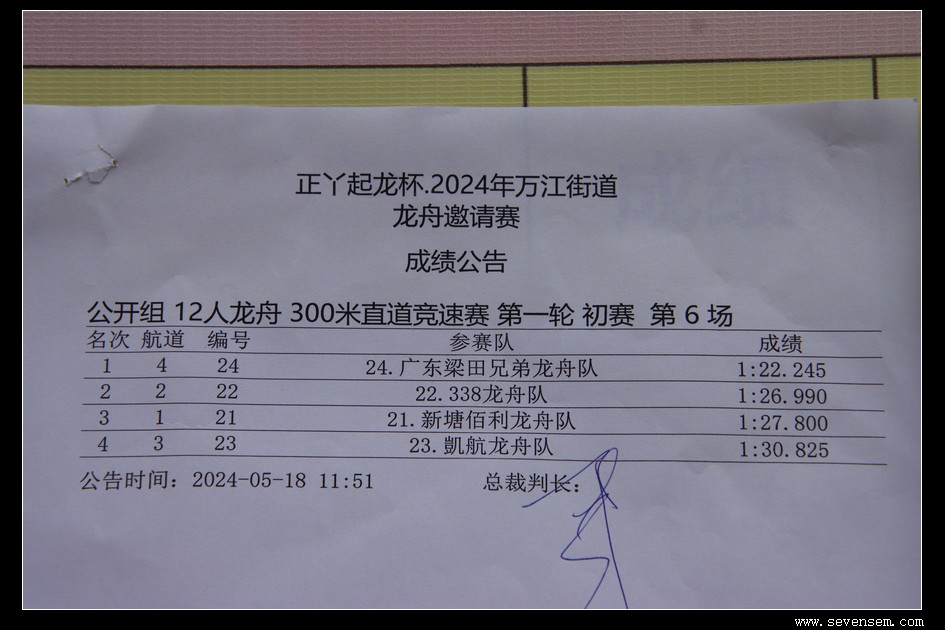 正丫起龙杯.2024年万江街道
龙舟邀请赛
成绩公告
公开组 12人龙舟 300米直道竞速赛 第一轮 初赛 第 6 场
名次 航道 编号 参赛队 成绩
1 4 24 24.广东梁田兄弟龙舟队 1:22.245
2 2 22 22.338龙舟队 1:26.990
3 1 21 21.新塘佰利龙舟队 1:27.800
4 3 23 23.凱航龙舟队 1:30.825
公告时间：2024-05-18 11:51 总裁判长：
www.sevensem.com